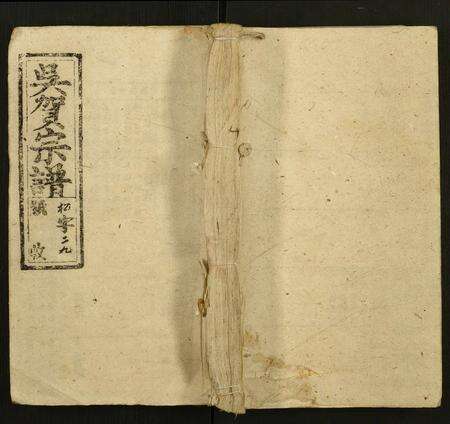 吳賀宗譜
字二九
收